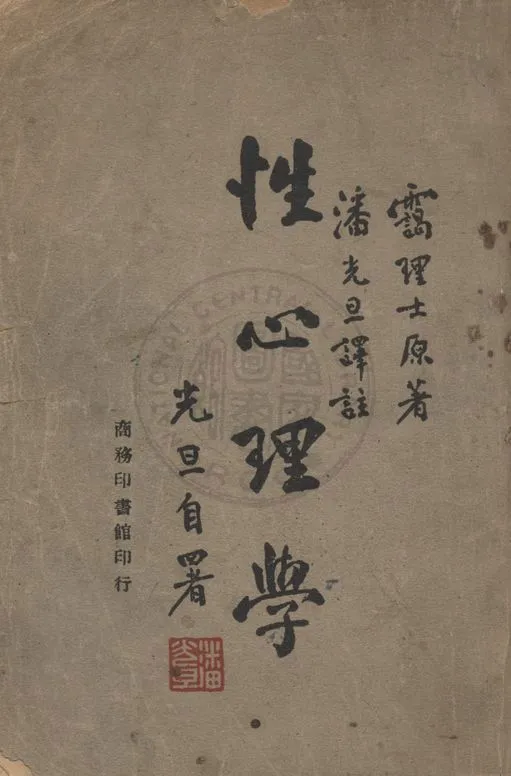 靄理士原著
潘光旦譯註
性心理學
光旦自署
商務印書館印行
潘光旦